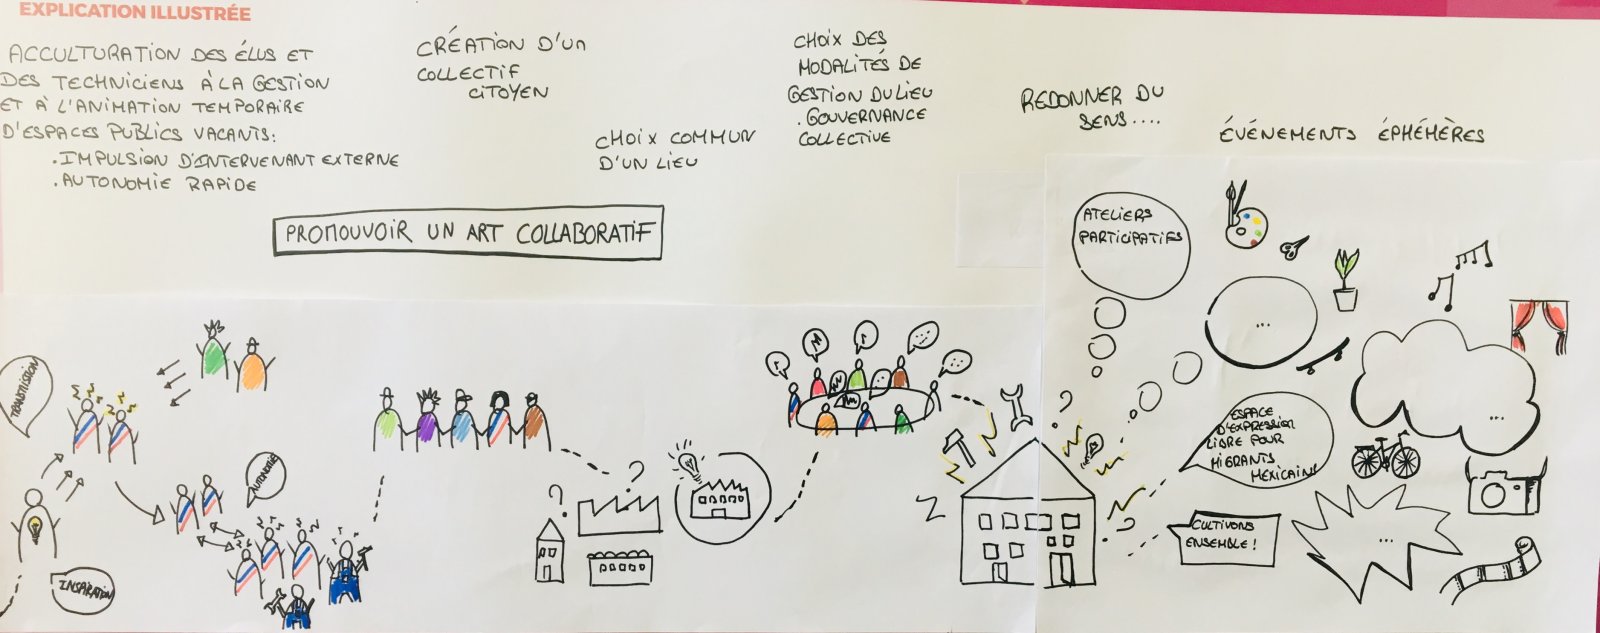 EXPLICATION ILLUSTRÉE
ACCULTURATION DES ÉLUS ET
DES TECHNICIENS À LA GESTION
ET À L'ANIMATION TEMPORAIRE
D'ESPACES PUBLICS VACANTS:
. IMPULSION D'INTERVENANT EXTERNE
. AUTONOMIE RAPIDE
CRÉATION D'UN
COLLECTIF
CITOYEN
CHOIX COMMUN
D'UN LIEU
CHOIX DES
MODALITÉS DE
GESTION DU LIEU
. GOUVERNANCE
COLLECTIVE
REDONNER DU
SENS....
ÉVÉNEMENTS ÉPHÉMÈRES
PROMOUVOIR UN ART COLLABORATIF
TRANSMISSION
INSPIRATION
AUTONOMIE
?
?
?
?
ATELIERS
PARTICIPATIFS
...
...
ESPACE
D'EXPRESSION
LIBRE POUR
MIGRANTS
MEXICAINS
CULTIVONS
ENSEMBLE!
...